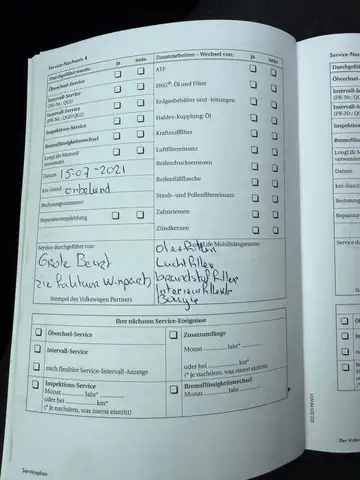 Service-Nachweis 4
Durchgeführt wurde: ja nein
Ölwechsel-Service
Intervall-Service
(PR-Nr.: QG1)
Intervall-Service
(PR-Nr.: QG0/QG2)
Inspektions-Service
Bremsflüssigkeitswechsel
LongLife Motoröl
verwendet
Datum: 15-07-2021
km-Stand: onbekend
Rechnungsnummer:
Reparaturempfehlung
Zusatzarbeiten - Wechsel von: ja nein
ATF
DSG®: Öl und Filter
Erdgasbehälter und -leitungen
Haldex-Kupplung: Öl
Kraftstofffilter
Luftfiltereinsatz
Reifendrucksensoren
Reifenfüllflasche
Staub- und Pollenfiltereinsatz
Zahnriemen
Zündkerzen
Service durchgeführt von:
Grote Beurt
zie faktuur Winparts
Stempel des Volkswagen Partners
LongLife Mobilitätsgarantie:
Oliefilter
Luchtfilter
brandstof filter
Interieurfilter
Bougie
Ihre nächsten Service-Ereignisse
Ölwechsel-Service
Intervall-Service
nach flexibler Service-Intervall-Anzeige
Inspektions-Service
Monat Jahr*
oder bei km*
(* je nachdem, was zuerst eintritt)
Zusatzumfänge
Monat Jahr*
oder bei km*
(* je nachdem, was zuerst eintritt)
Bremsflüssigkeitswechsel
Monat Jahr
Serviceplan
Service-Nac
Durchgeführt
Ölwechsel-Se
Intervall-Se
(PR-Nr.: QG
Intervall-S
(PR-Nr.: QG
Inspektion
Bremsflüs
LongLife
verwende
Datum:
km-Stan
Rechnu
Repara
Service d
Der Volk